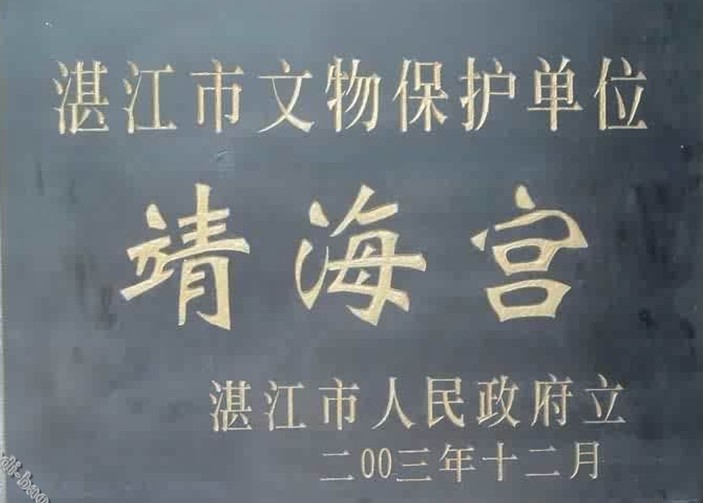 湛江市文物保护单位
靖海宫
湛江市人民政府立
二00三年十二月